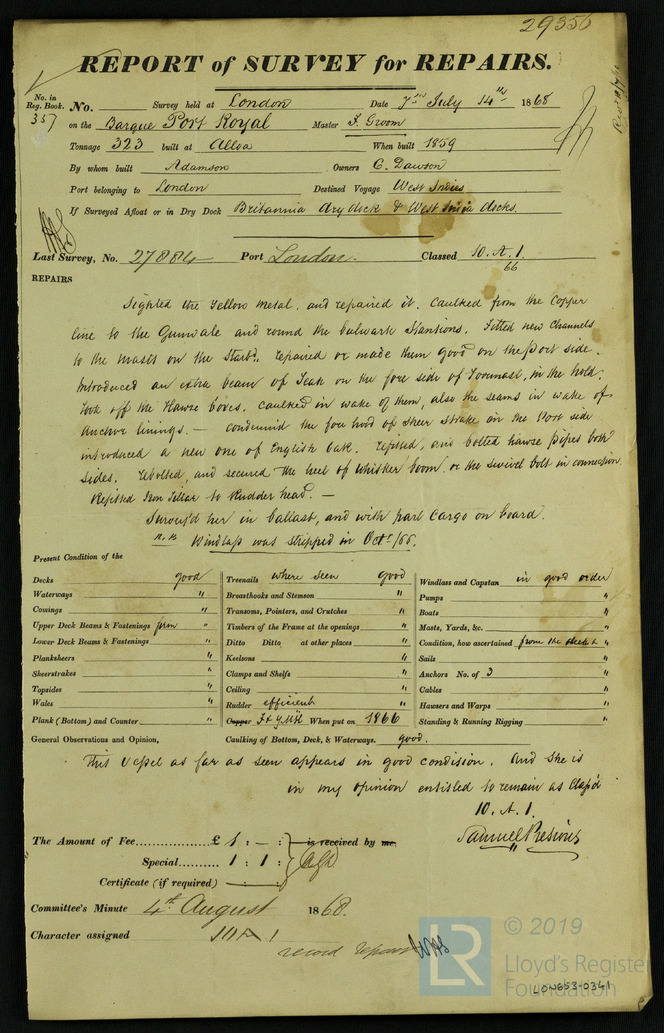 29356
REPORT of SURVEY for REPAIRS.
No. in Reg. Book. No. Survey held at London Date 7th July 14th 1868
357 on the Barque Port Royal Master F. Groom
Tonnage 323 built at Alloa When built 1859
By whom built Adamson Owners C. Dawson
Port belonging to London Destined Voyage West Indies
If Surveyed Afloat or in Dry Dock Britannia dry dock & West India docks.
Last Survey, No. 27884 Port London. Classed 10. A. 1.
66
REPAIRS
Sighted the Yellow Metal, and repaired it. Caulked from the Copper
line to the Gunwale and round the bulwark Stantions. Fitted new Channels
to the Masts on the Starbd. repaired or made them good on the Port side.
Introduced an extra beam of Teak on the fore side of Foremast, in the hold.
Took off the Hawse boxes. Caulked in wake of them, also the seams in wake of
Anchor linings. — Condemned the fore hood of Sheer Strake on the Port side
introduced a new one of English Oak. refitted, and bolted hawse pipes both
sides. rebolted, and secured the heel of Whisker boom, or the swivel bolt in connection.
Refitted Iron Tillar to Rudder head. —
Survey'd her in ballast, and with part Cargo on board.
N.B Windlass was stripped in Octr/66.
Present Condition of the
Decks good Treenails where seen good Windlass and Capstan in good order
Waterways " Breasthooks and Stemson " Pumps "
Comings " Transoms, Pointers, and Crutches " Boats "
Upper Deck Beams & Fastenings firm " Timbers of the Frame at the openings " Masts, Yards, &c. "
Lower Deck Beams & Fastenings " Ditto Ditto at other places " Condition, how ascertained from the deck &
Planksheers " Keelsons " Sails "
Sheerstrakes " Clamps and Shelfs " Anchors No. of 3 "
Topsides " Ceiling " Cables "
Wales " Rudder efficient Hawsers and Warps "
Plank (Bottom) and Counter " Copper F & Y. Mtl When put on 1866 Standing & Running Rigging "
General Observations and Opinion, Caulking of Bottom, Deck, & Waterways. good.
This Vessel as far as seen appears in good condision. And she is
in my opinion entitled to remain as Class'd
10. A. 1.
The Amount of Fee £ 1 : — : is received by me.
Special 1 : 1 :
Certificate (if required) : :
Committee's Minute 4th August 1868.
Character assigned 10 A 1
record repairs
© 2019
LR Lloyd's Register
Foundation
LON653-0341